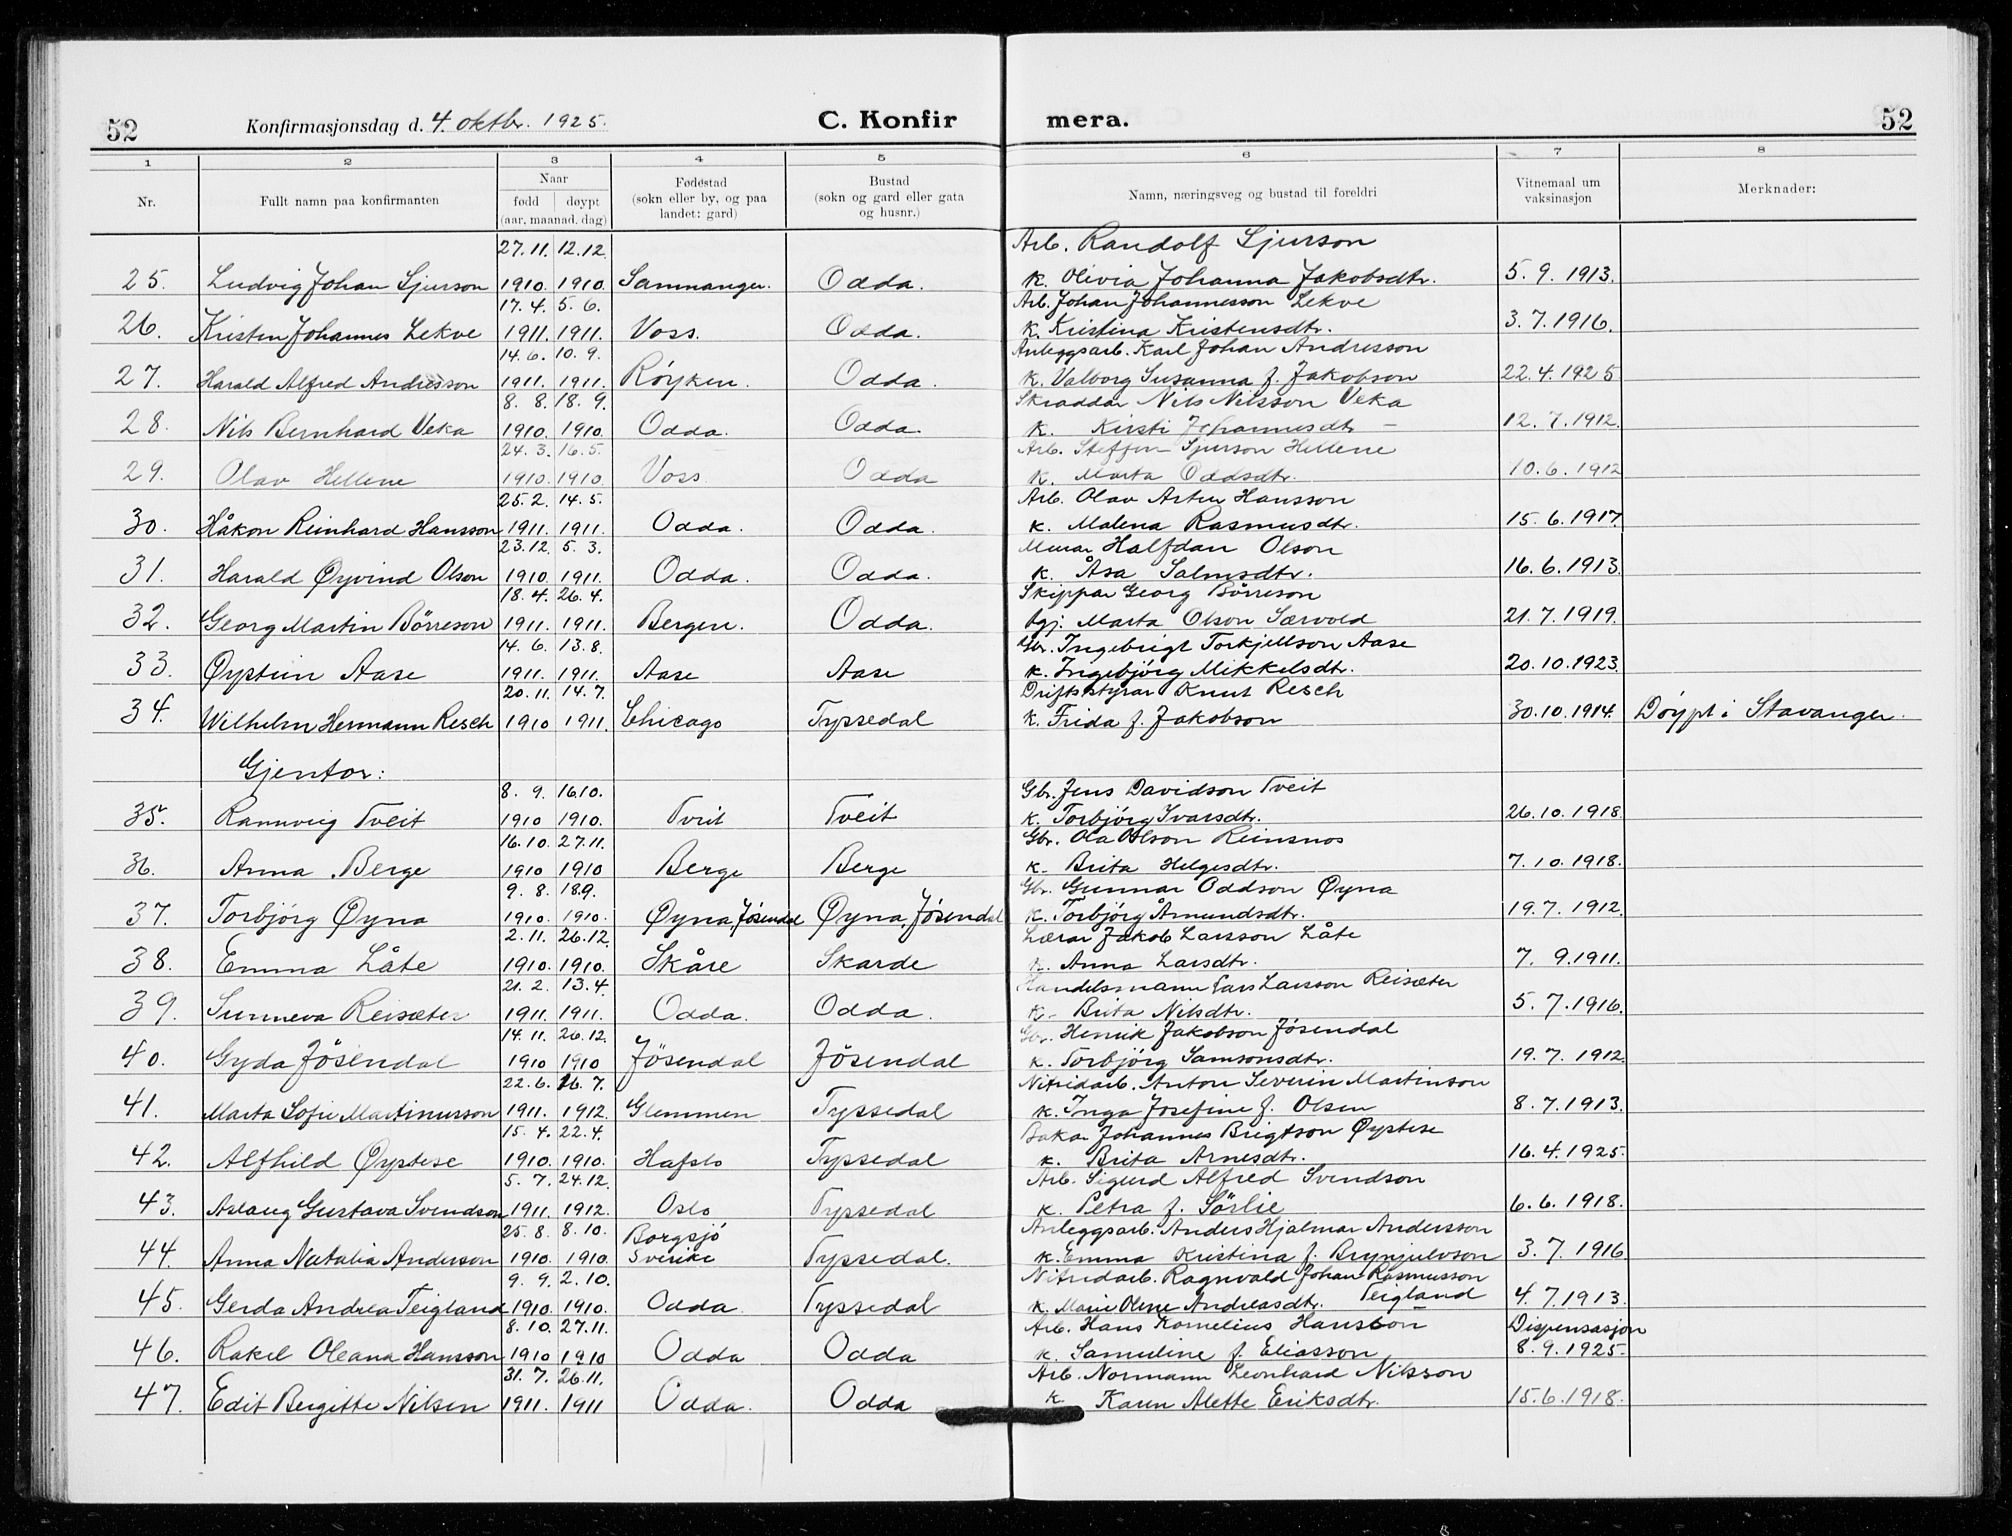 52 Konfirmasjonsdag d. 4. oktbr. 1925. C. Konfir mera. 52
1 2 3 4 5 6 7 8
Nr. Fullt namn paa konfirmanten Naar Fødestad Bustad Namn, næringsveg og bustad til foreldri Vitnemaal um Merknader:
fødd døypt (sokn eller by, og paa (sokn og gard eller gata vaksinasjon
(aar, maanad, dag) landet: gard) og husnr.)
27.11. 12.12. Arb. Randolf Sjurson
25. Ludvig Johan Sjurson 1910. 1910. Samnanger. Odda. k. Olivia Johanna Jakobsdtr. 5.9.1913.
17.4. 5.6. Arb. Johan Johannesson Lekve
26. Kristen Johannes Lekve 1911. 1911. Voss. Odda. k. Kristina Kristensdtr. 3.7.1916.
14.6. 10.9. Anleggsarb. Karl Johan Andresson
27. Harald Alfred Andresson 1911. 1911. Røyken. Odda. k. Valborg Susanna f. Jakobson 22.4.1925
8.8. 18.9. Skraddar Nils Nilsson Veka
28. Nils Bernhard Veka 1910. 1910. Odda. Odda. k. Kirsti Johannesdtr — 12.7.1912.
24.3. 16.5. Arb. Steffen Sjurson Hellene
29. Olav Hellene 1910. 1910. Voss Odda k. Marta Oddsdtr. 10.6.1912
25.2. 14.5. Arb. Olav Arten Hansson
30. Håkon Reinhard Hansson 1911. 1911. Odda. Odda. k. Malena Rasmusdtr. 15.6.1917
23.12. 5.3. Murar Halfdan Olson
31. Harald Øyvind Olson 1910. 1911. Odda. Odda. k. Åsa Salmsdtr. 16.6.1913.
18.4. 26.4. Skippar Georg Børreson
32. Georg Martin Børreson 1911. 1911. Bergen. Odda. bgj. Marta Olson Særvold 21.7.1919.
14.6. 13.8. Gbr. Ingebrigt Torkjellson Aase
33. Øystein Aase 1911. 1911. Aase Aase k. Ingebjørg Mikkelsdtr. 20.10.1923.
20.11. 14.7. Driftsstyrar Knut Resch
34. Wilhelm Hermann Resch 1910 1911. Chicago Tyssedal k. Frida f. Jakobson 30.10.1914. Døypt i Stavanger.
Gjentor:
8.9. 16.10. Gbr. Jens Davidson Tveit
35. Rannveig Tveit 1910 1910. Tveit Tveit k. Torbjørg Ivarsdtr. 26.10.1918.
16.10. 27.11. Gbr. Ola Olson Reinsnos
36. Anna Berge 1910 1910 Berge Berge k. Brita Helgesdtr. 7.10.1918.
9.8. 18.9. Gbr. Gunnar Oddson Øyna
37. Torbjørg Øyna 1910. 1910. Øyna, Jøsendal Øyna, Jøsendal k. Torbjørg Åmundsdtr. 19.7.1912.
2.11. 26.12. Lærar Jakob Larsson Låte
38. Emma Låte 1910. 1910. Skåre Skarde k. Anna Larsdtr. 7.9.1911.
21.2. 13.4. Handelsmann Lars Larsson Reisæter
39. Sunneva Reisæter 1911. 1911. Odda. Odda. k. Brita Nilsdtr. 5.7.1916.
14.11. 26.12. Gbr. Henrik Jakobson Jøsendal
40. Gyda Jøsendal 1910 1910 Jøsendal Jøsendal k. Torbjørg Samsonsdtr. 19.7.1912.
22.6. 16.7. Nitridarb. Anton Severin Martinson
41. Marta Sofie Martinusson 1911. 1912. Glemmen Tyssedal k. Inga Josefine f. Olsen 8.7.1913.
15.4. 22.4. Bakar Johannes Brigtson Øystese
42. Alfhild Øystese 1910. 1910. Hafslo Tyssedal k. Brita Arnesdtr. 16.4.1925.
5.7. 24.12. Arb. Sigurd Alfred Svendson
43. Aslaug Gustava Svendson 1911. 1912. Oslo Tyssedal k. Petra f. Sørlie 6.6.1918.
25.8. 8.10. Borgsjø Anleggsarb. Anders Hjalmar Andersson
44. Anna Natalia Anderson 1910. 1910. Sverike Tyssedal. k. Emma Kristina f. Brynjulvson 3.7.1916
9.9. 2.10. Nitridarb. Ragnvald Johan Rasmusson
45. Gerda Andrea Teigland 1910. 1910. Odda Tyssedal k. Marie Olene Andreasdtr. Teigland 4.7.1913.
8.10. 27.11. Arb. Hans Kornelius Hansson Dispensasjon
46. Rakel Oleana Hansson 1910 1910 Odda Odda k. Samuline f. Eliasson 8.9.1925.
31.7. 26.11. Arb. Normann Leonhard Nilsson
47. Edit Bergitte Nilsen 1911. 1911 Odda. Odda k. Karen Alette Eriksdtr. 15.6.1918.